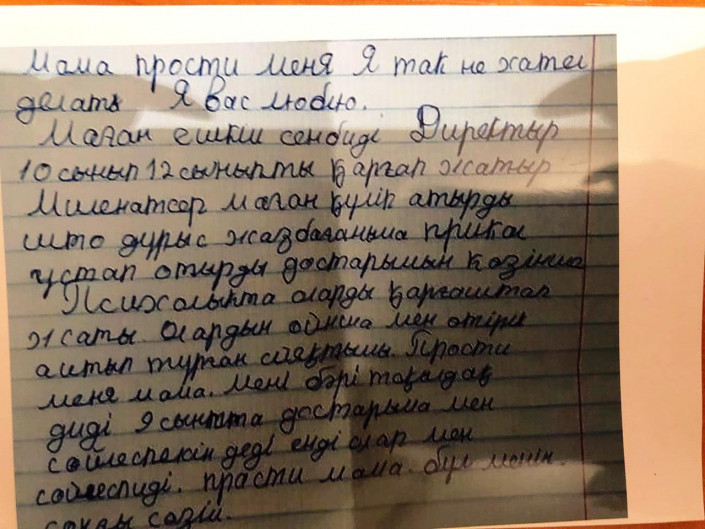 Мама прости меня Я так не хател
делать Я вас люблю.
Маған ешкім сенбиді Директыр
10 сынып 12 сыныпты қарғап жатыр
Миленатсор маған күліп атырды
што дұрыс жазбағаныма прикол
ұстап отырды достарымын көзінша
Психолыкта оларды қарғаштап
жаты. Олардын ойнша мен өтірік
аитып тұрған сияқтымы. Прости
меня мама. Мені бәрі
диді 9 сынпта достарыма мен
сөйлеспекін деді енді олар мен
сөйлеспиді. прасти мама. бұл менің
соңғы сөзім.